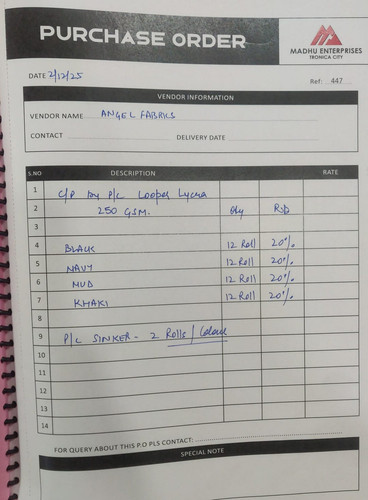 PURCHASE ORDER
MADHU ENTERPRISES
TRONICA CITY
DATE 2/12/25
Ref: 447
VENDOR INFORMATION
VENDOR NAME ANGEL FABRICS
CONTACT DELIVERY DATE
S.NO DESCRIPTION RATE
1 C/P P/C Looper Lycra
2 250 GSM. Qty Rib
3
4 BLACK 12 Roll 20%
5 NAVY 12 Roll 20%
6 MUD 12 Roll 20%
7 KHAKI 12 Roll 20%
8
9 P/C SINKER - 2 Rolls / Colour
10
11
12
13
14
FOR QUERY ABOUT THIS P.O PLS CONTACT:
SPECIAL NOTE